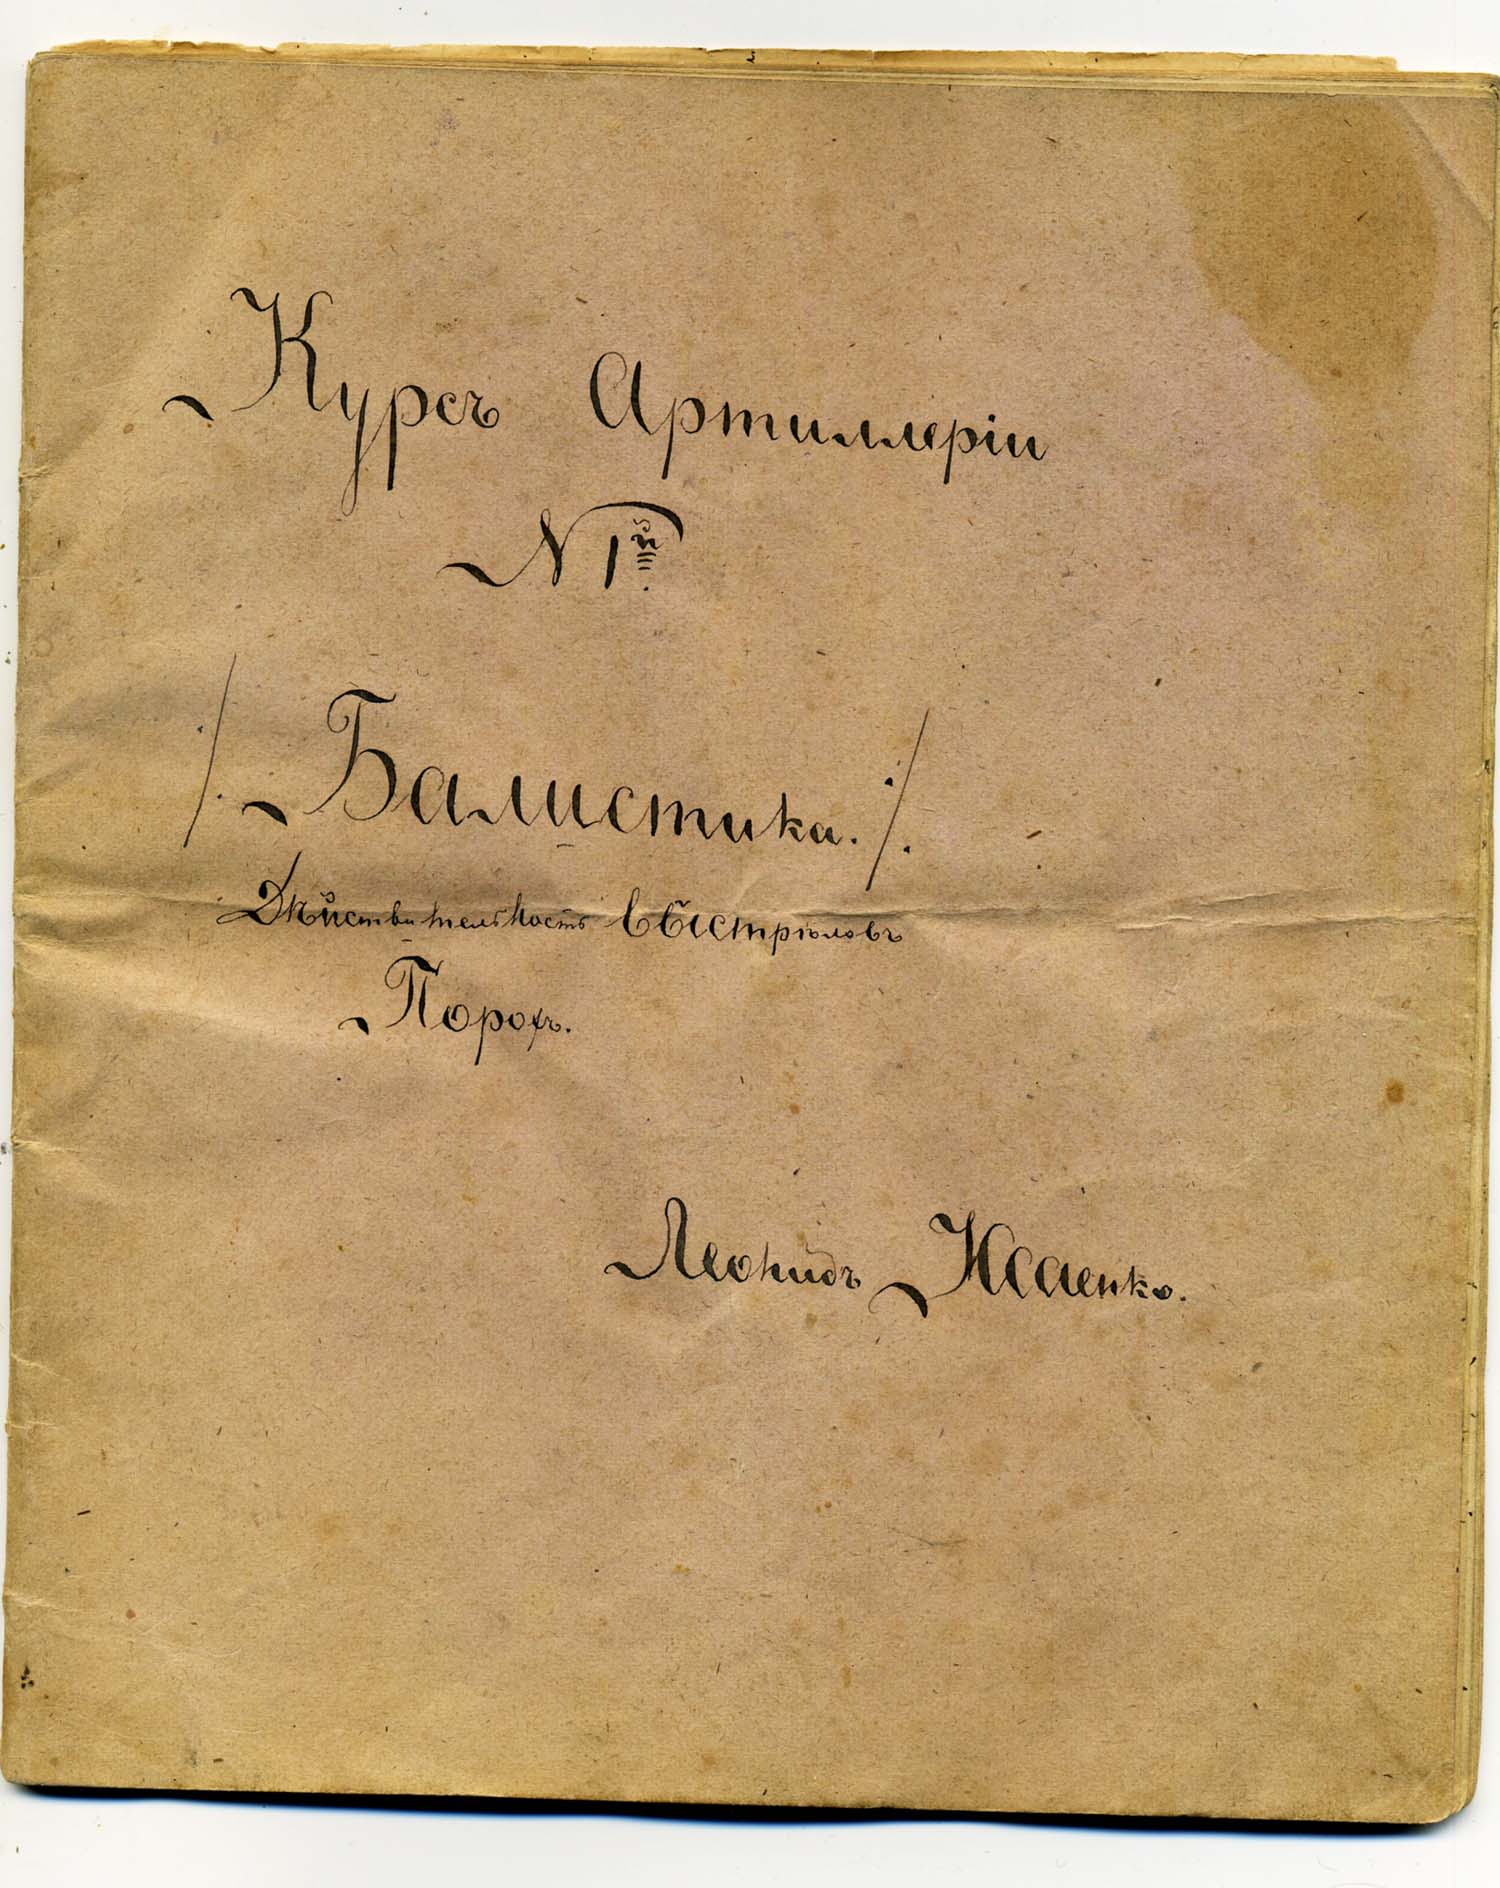 Курсъ Артиллеріи
N 1й.
/. Балистика. ./.
Дѣйствительность выстрѣловъ
Порохъ.
Леонидъ Исаенко.